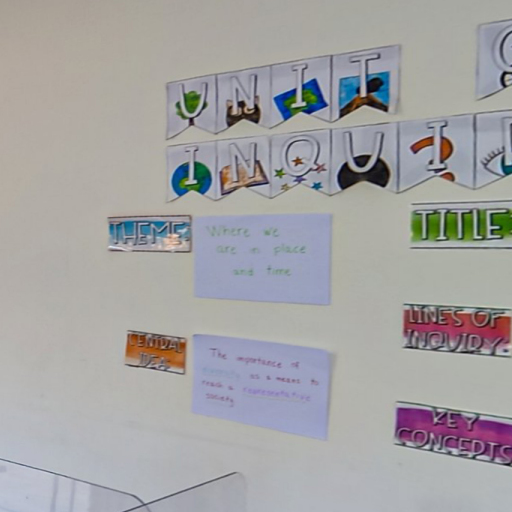 UNIT O
INQUI
THEME:
Where we
are in place
and time
TITLE:
CENTRAL
IDEA:
The importance of
diversity as a means to
reach a representative
society
LINES OF
INQUIRY:
KEY
CONCEPTS